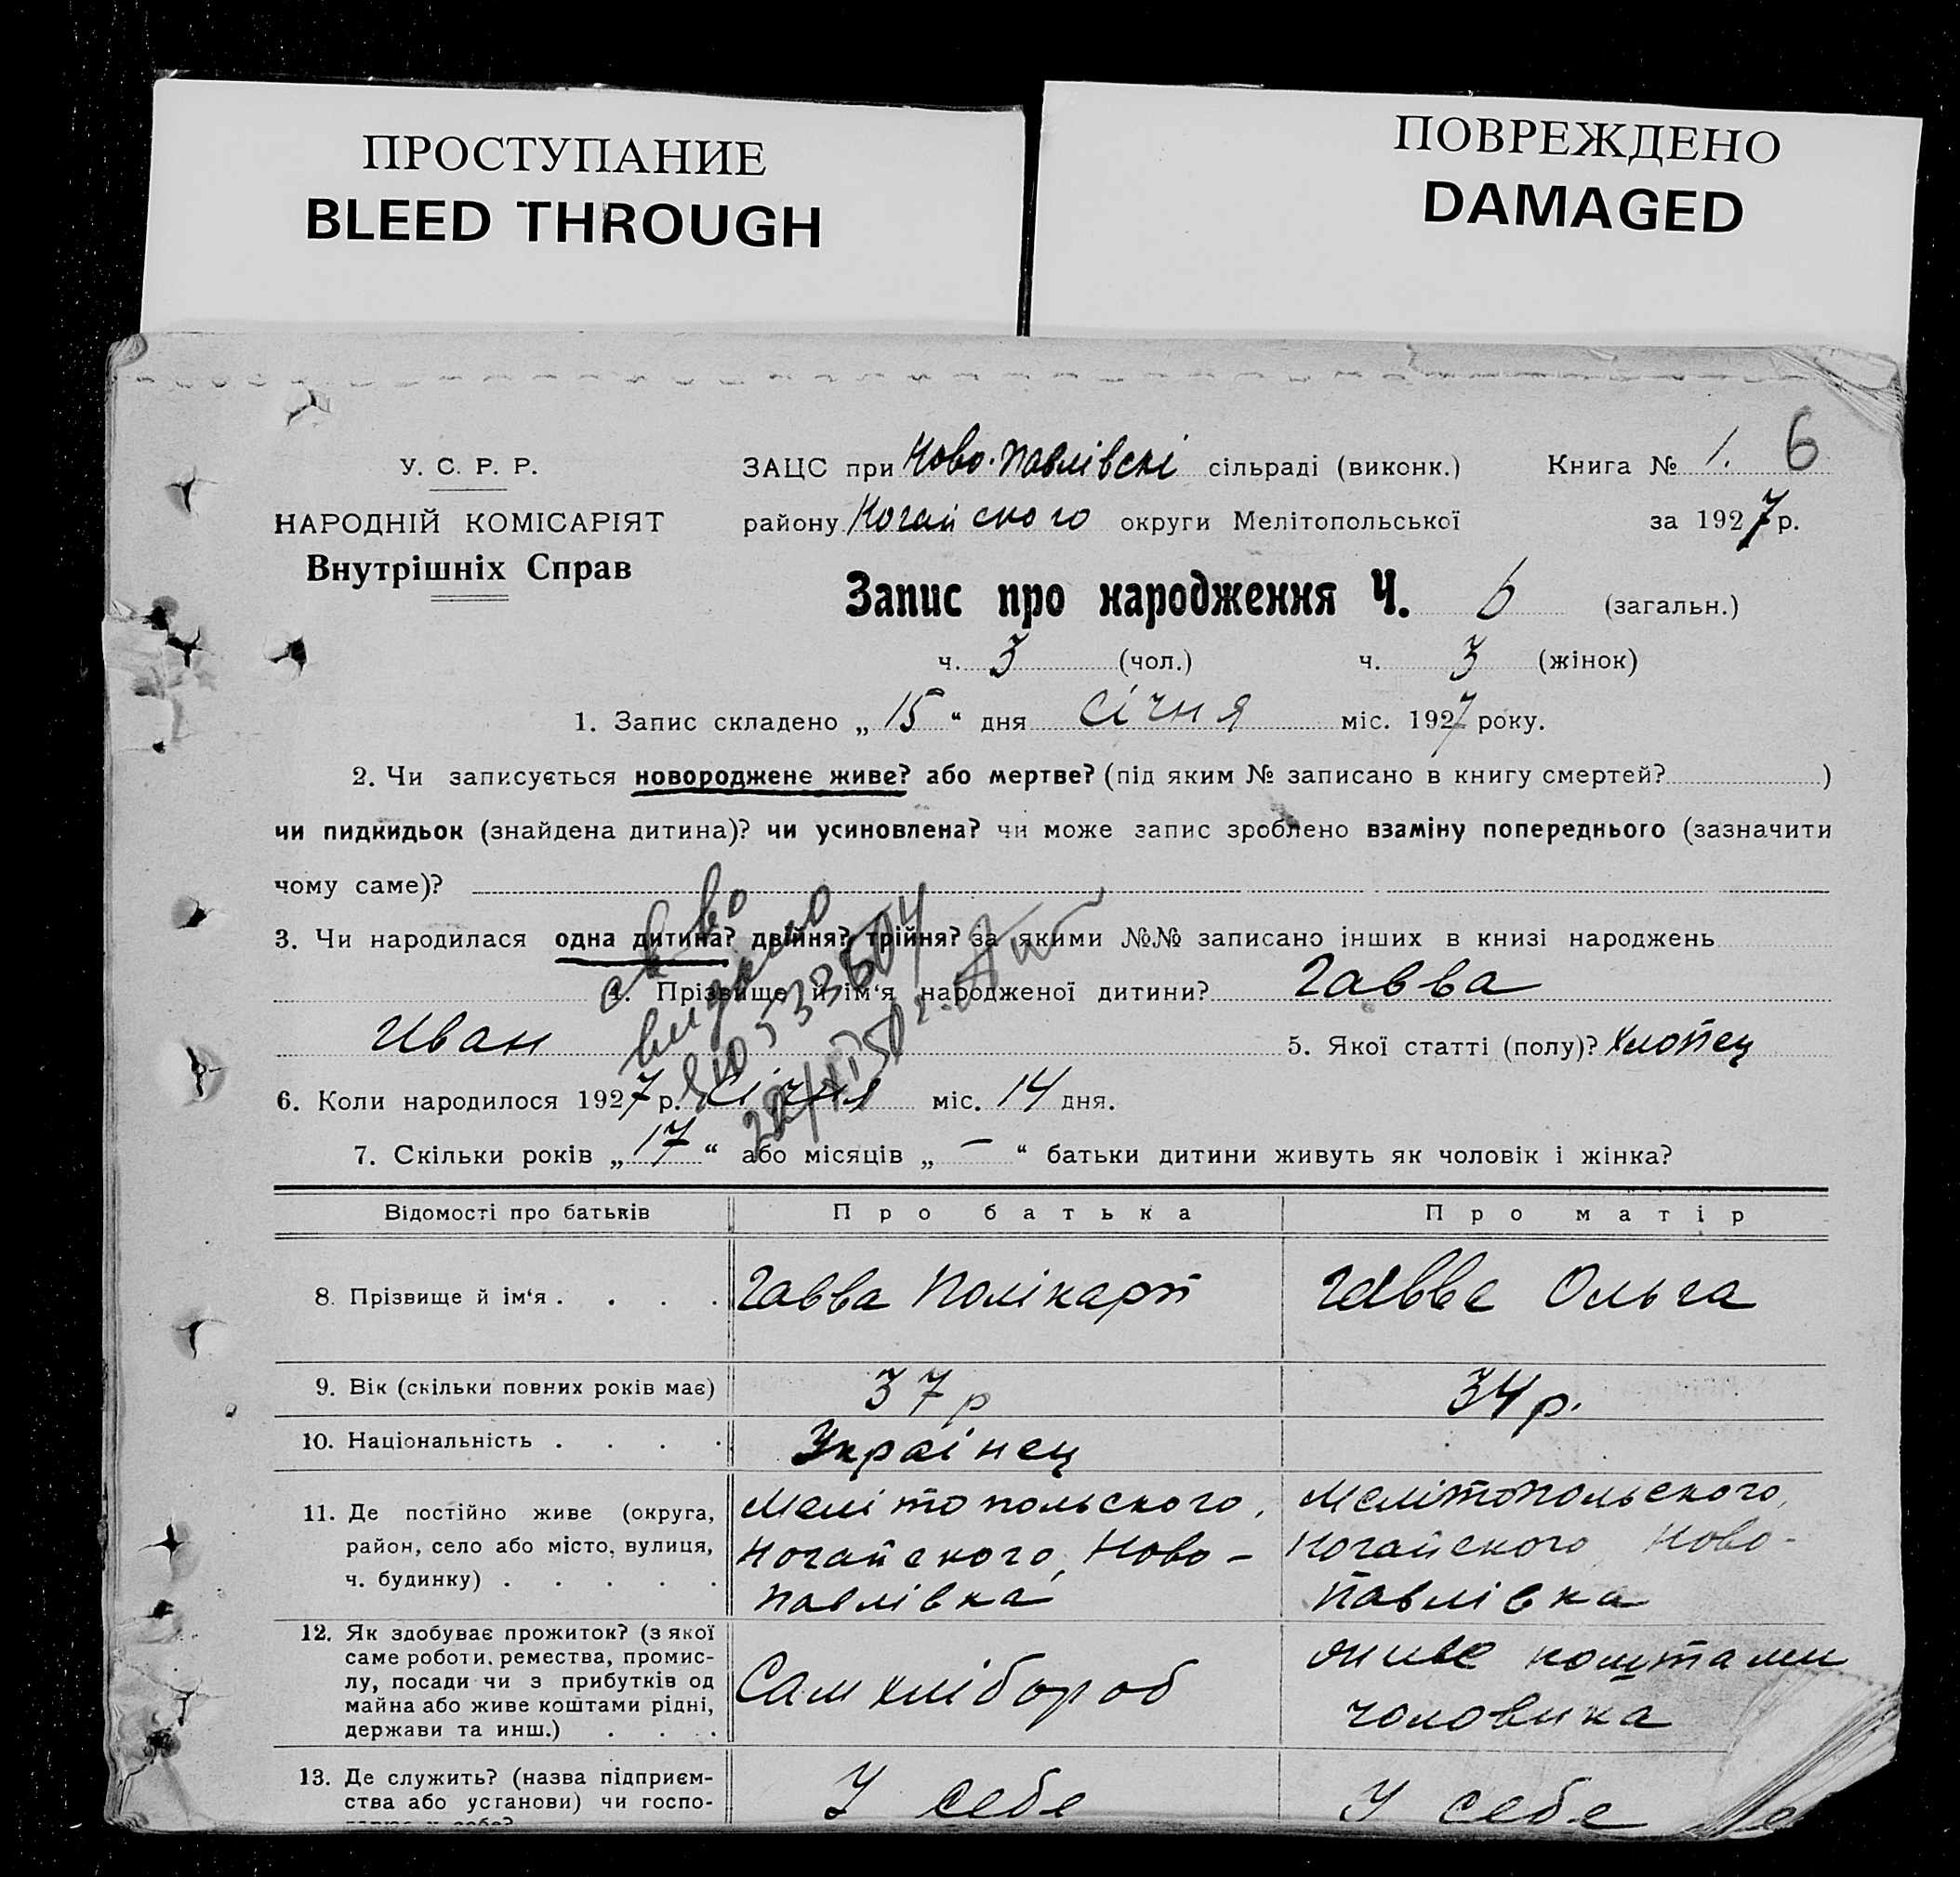 ПРОСТУПАНИЕ
BLEED THROUGH
ПОВРЕЖДЕНО
DAMAGED
У. С. Р. Р.
НАРОДНІЙ КОМІСАРІЯТ
Внутрішніх Справ
ЗАЦС при Ново-Павлівскі сільраді (виконк.)
Книга № 1. 6
району Ногайского округи Мелітопольської
за 1927 р.
Запис про народження Ч. 6 (загальн.)
ч. 3 (чол.) ч. 3 (жінок)
1. Запис складено „ 15 “ дня січня міс. 1927 року.
2. Чи записується новороджене живе? або мертве? (під яким № записано в книгу смертей? )
чи пидкидьок (знайдена дитина)? чи усиновлена? чи може запис зроблено взаміну попереднього (зазначити
чому саме)?
3. Чи народилася одна дитина? двійня? трійня? за якими №№ записано інших в книзі народжень
4. Прізвище й ім‘я народженої дитини? Гавва
Иван 5. Якої статті (полу)? Хлопец
св во
видано
533504
6. Коли народилося 1927 р. Січня міс. 14 дня.
7. Скільки років „ 17 “ або місяців „ — “ батьки дитини живуть як чоловік і жінка?
Відомості про батьків Про батька Про матір
8. Прізвище й ім‘я . . . . Гавва Полікарп Гавва Ольга
9. Вік (скільки повних років має) 37 р 34 р.
10. Національність . . . . Українец
11. Де постійно живе (округа, район, село або місто, вулиця, ч. будинку) . . . . .
Мелітопольского,
Ногайского, Ново-
павлівка
Мелітопольского,
Ногайского, Ново-
павлівка
12. Як здобуває прожиток? (з якої
саме роботи, ремества, промис-
лу, посади чи з прибутків од
майна або живе коштами рідні,
держави та инш.) . . .
Сам хлібороб
живе коштами
чоловика
13. Де служить? (назва підприєм-
ства або установи) чи госпо-
У себе
У себе